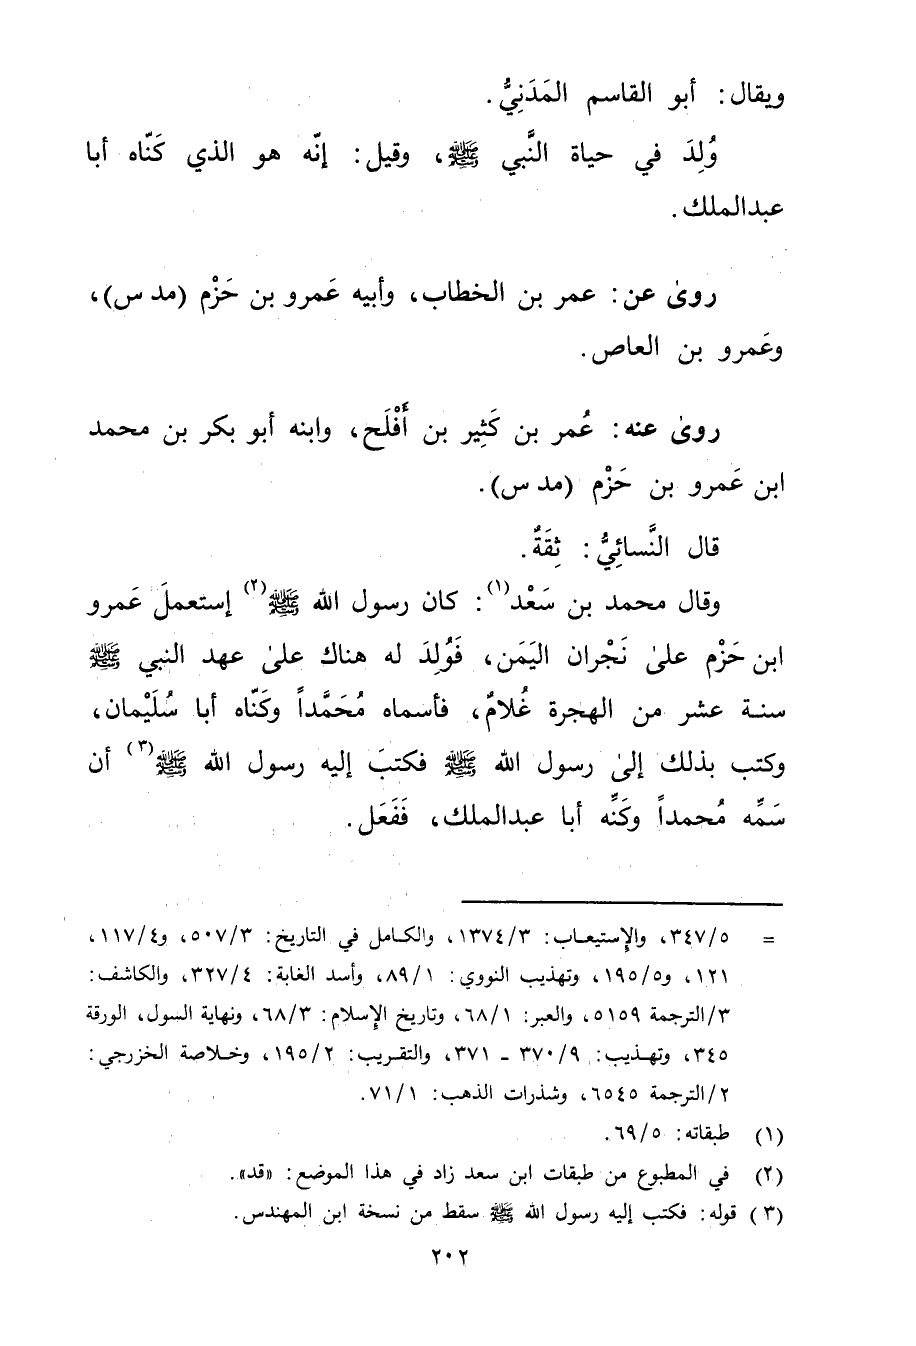 ويقال: أبو القاسم المَدَنِيُّ.
وُلِدَ في حياة النَّبي ﷺ، وقيل: إنّه هو الذي كَنّاه أبا
عبدالملك.
روىٰ عن: عمر بن الخطاب، وأبيه عَمرو بن حَزْم (مد س)،
وعَمرو بن العاص.
روىٰ عنه: عُمر بن كَثِير بن أَفْلَح، وابنه أبو بكر بن محمد
ابن عَمرو بن حَزْم (مد س).
قال النَّسائِيُّ: ثِقَةٌ.
وقال محمد بن سَعْد(١): كان رسول الله ﷺ(٢) إستعملَ عَمرو
ابن حَزْم علىٰ نَجْران اليَمَن، فَوُلِدَ له هناك علىٰ عهد النبي ﷺ
سنة عشر من الهجرة غُلامٌ، فأسماه مُحَمَّداً وكَنّاه أبا سُلَيْمان،
وكتب بذلك إلىٰ رسول الله ﷺ فكتبَ إليه رسول الله ﷺ(٣) أن
سَمِّه مُحمداً وكَنِّه أبا عبدالملك، فَفَعَل.
= ٣٤٧/٥، والإستيعاب: ١٣٧٤/٣، والكامل في التاريخ: ٥٠٧/٣، و١١٧/٤،
١٢١، و١٩٥/٥، وتهذيب النووي: ٨٩/١، وأسد الغابة: ٣٢٧/٤، والكاشف:
٣/الترجمة ٥١٥٩، والعبر: ٦٨/١، وتاريخ الإسلام: ٦٨/٣، ونهاية السول، الورقة
٣٤٥، وتهذيب: ٣٧٠/٩ ـ ٣٧١، والتقريب: ١٩٥/٢، وخلاصة الخزرجي:
٢/الترجمة ٦٥٤٥، وشذرات الذهب: ٧١/١.
(١) طبقاته: ٦٩/٥.
(٢) في المطبوع من طبقات ابن سعد زاد في هذا الموضع: «قد».
(٣) قوله: فكتب إليه رسول الله ﷺ سقط من نسخة ابن المهندس.
٢٠٢